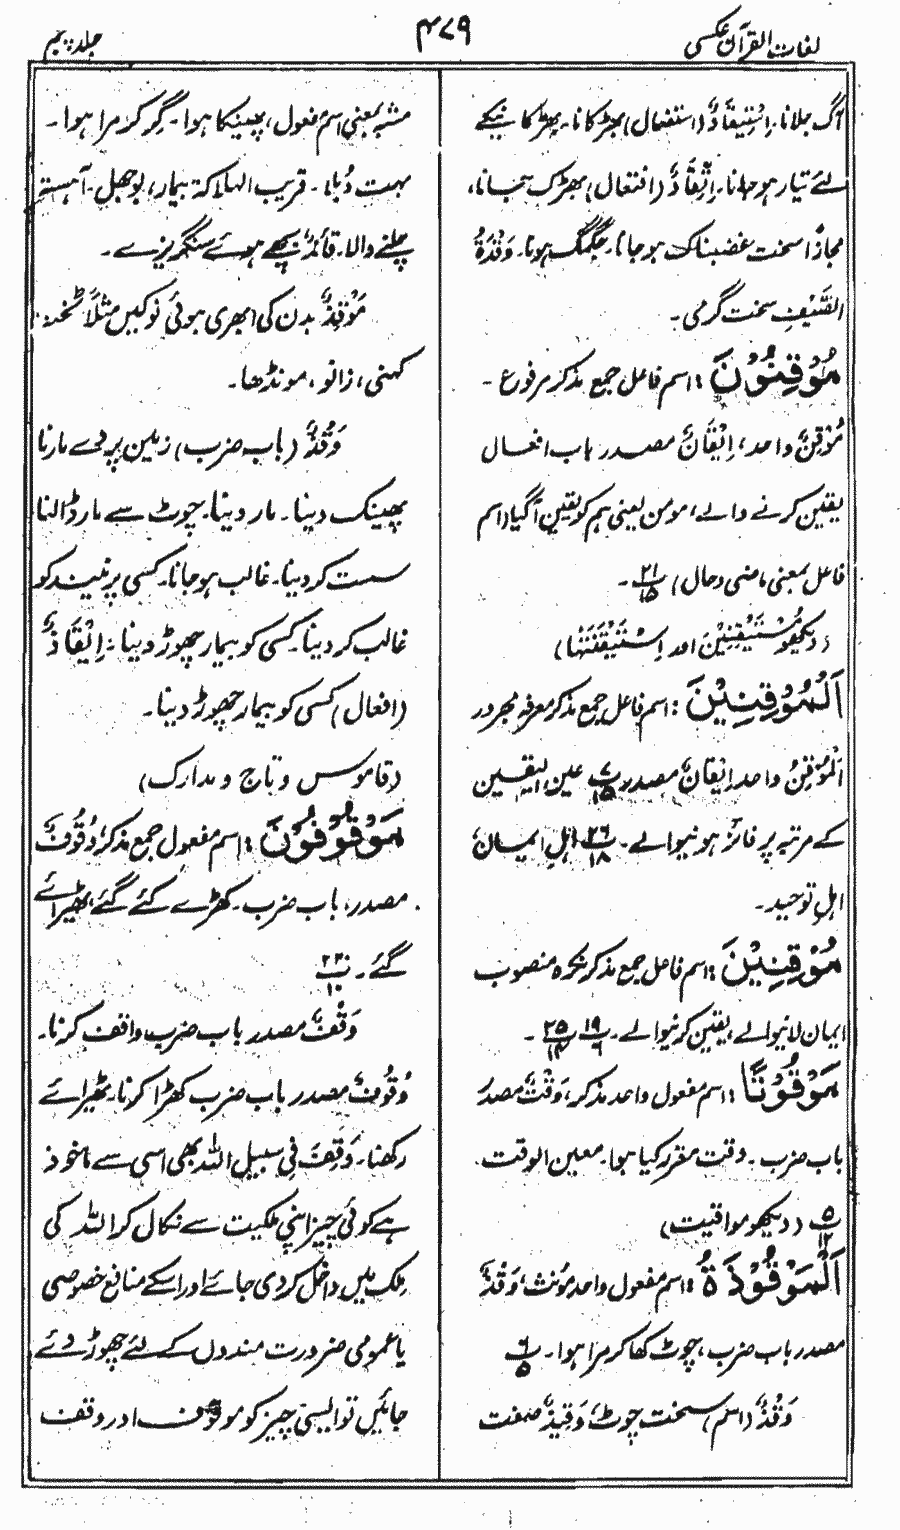 لغات القرآن عکسی
۴۷۹
جلد پنجم
آگ جلانا۔ اِسْتِیْقَادٌ (استفعال) بھڑکانا۔ بھڑکانے کے
لئے تیار ہو جانا۔ اِتِّقَادٌ (افتعال) بھڑک جانا،
مجازًا سخت غضبناک ہو جانا۔ جگمگ ہونا۔ وَقْدَۃُ
الصَّیْفِ سخت گرمی۔
مُوْقِنُوْنَ : اسم فاعل جمع مذکر مرفوع ۔
مُوْقِنٌ واحد، اِیْقَانٌ مصدر باب افعال
یقین کرنے والے، مومن یعنی ہم کو یقین آگیا (اسم
فاعل بمعنی ماضی وحال) ۲۱/۱۵ ۔
(دیکھو مُسْتَیْقِنِیْنَ اور اِسْتَیْقَنَتْھَا)
اَلْمُوْقِنِیْنَ : اسم فاعل جمع مذکر معرفہ مجرور
اَلْمُوْقِنُ واحد اِیْقَانٌ مصدر ۷/۱۵ عین الیقین
کے مرتبہ پر فائز ہونیوالے۔ ۲۶/۱۸ اہلِ ایمان
اہلِ توحید۔
مُوْقِنِیْنَ : اسم فاعل جمع مذکر نکرہ منصوب
ایمان لانیوالے، یقین کرنیوالے۔ ۱۹/۶ ۲۵/۱۴ ۔
مَوْقُوْتًا : اسم مفعول واحد مذکر، وَقْتٌ مصدر
باب ضرب ۔ وقت مقرر کیا ہوا۔ معین الوقت۔
۵/۱۲ (دیکھو مواقیت)
اَلْمَوْقُوْذَۃُ : اسم مفعول واحد مؤنث، وَقْذٌ
مصدر باب ضرب، چوٹ کھا کر مرا ہوا۔ ۶/۵
وَقْذٌ (اسم) سخت چوٹ، وَقِیْذٌ صفت
مشبہ بمعنی اسم مفعول، پھینکا ہوا۔ گر کر مرا ہوا۔
بہت دُبلا۔ قریب الہلاکۃ بیمار، بوجھل۔ آہستہ
چلنے والا۔ قَائِذٌ بچھے ہوئے سنگریزے۔
مَوْقِذٌ بدن کی ابھری ہوئی نوکیں مثلاً ٹخنہ
کہنی، زانو، مونڈھا۔
وَقْذٌ (باب ضرب) زمین پر دے مارنا
پھینک دینا۔ مار دینا۔ چوٹ سے مار ڈالنا
سست کر دینا۔ غالب ہو جانا۔ کسی پر نیند کو
غالب کر دینا۔ کسی کو بیمار چھوڑ دینا۔ اِیْقَاذٌ
(افعال) کسی کو بیمار چھوڑ دینا۔
(قاموس و تاج و مدارک)
مَوْقُوْفُوْنَ : اسم مفعول جمع مذکر، وُقُوْفٌ
مصدر، باب ضرب۔ کھڑے کئے گئے، ٹھیرائے
گئے ۔ ۲۲/۱۰
وَقْفٌ مصدر باب ضرب واقف کرنا۔
وُقُوْفٌ مصدر باب ضرب کھڑا کرنا۔ ٹھیرائے
رکھنا۔ وَقْفٌ فی سبیل اللہ بھی اسی سے ماخوذ
ہے کوئی چیز اپنی ملکیت سے نکال کر اللہ کی
ملک میں داخل کر دی جائے اور اسکے منافع خصوصی
یا عمومی ضرورت مندوں کے لئے چھوڑ دئے
جائیں تو ایسی چیز کو موقوف اور وقف